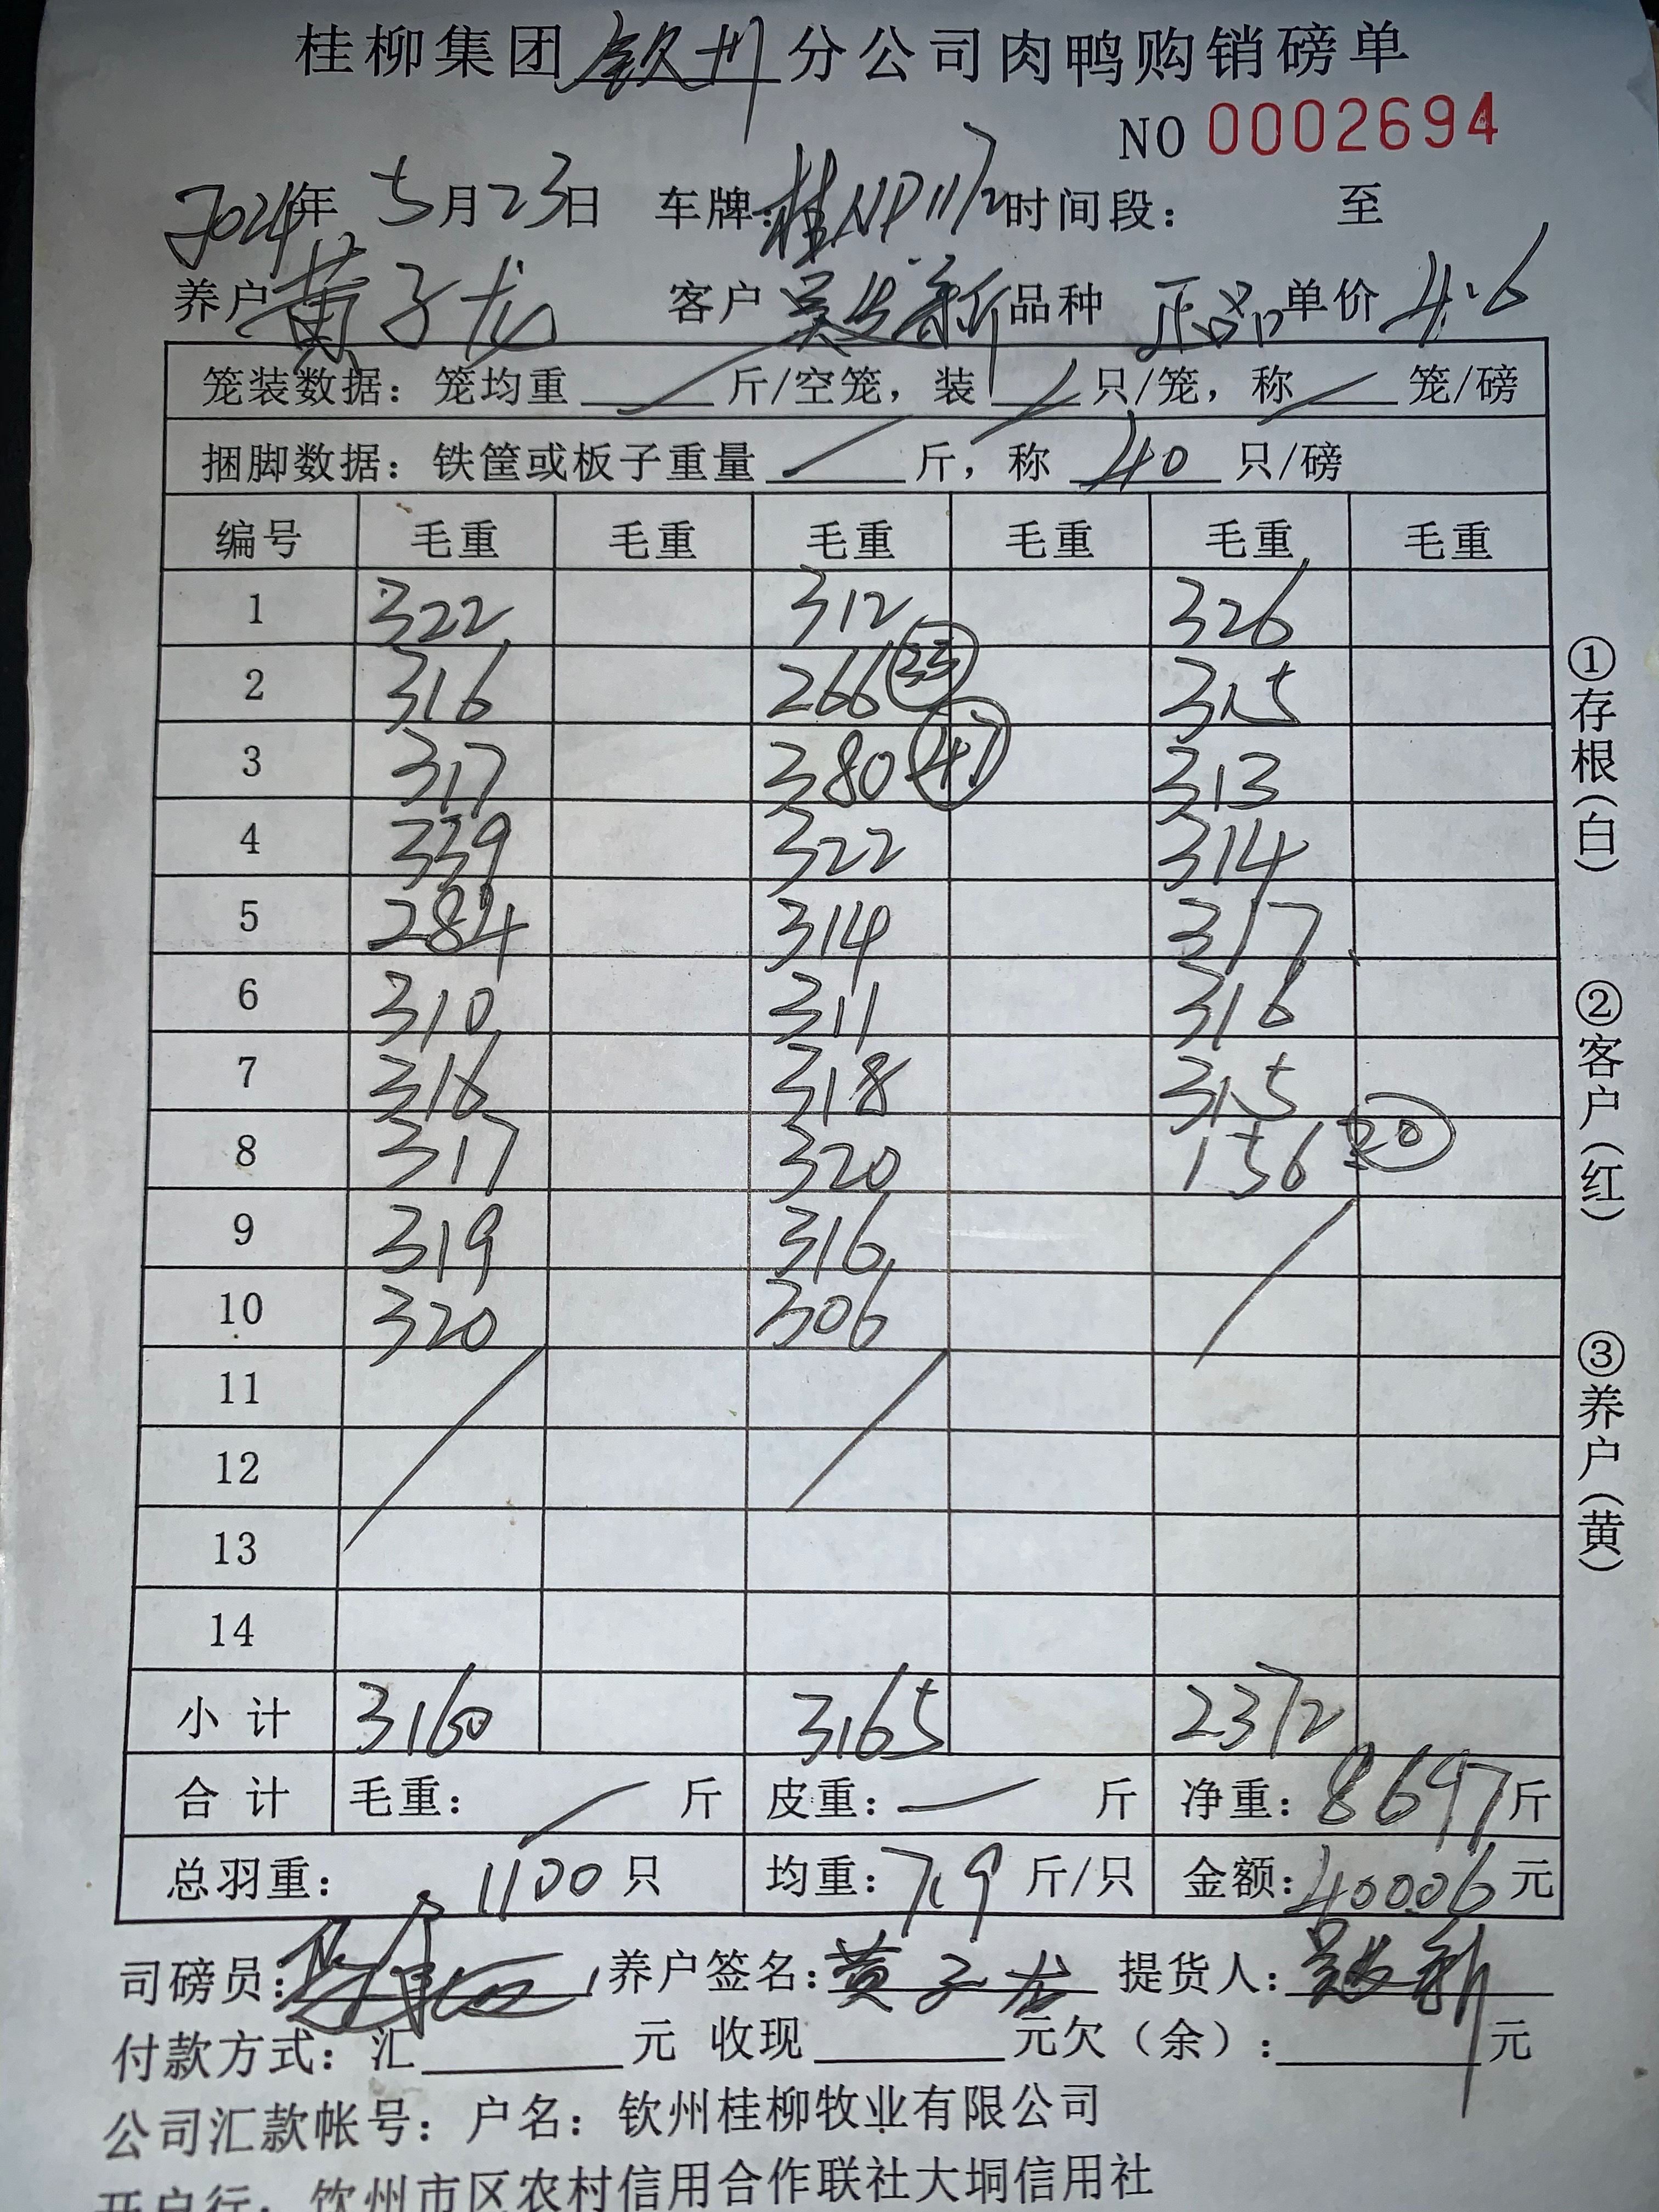 桂柳集团钦州分公司肉鸭购销磅单
NO 0002694
2024年 5月23日 车牌:桂NP1172 时间段: 至
养户 黄子龙 客户 吴 新 品种 正品 单价 4.6
笼装数据: 笼均重 / 斤/空笼, 装 / 只/笼, 称 / 笼/磅
捆脚数据: 铁筐或板子重量 / 斤, 称 40 只/磅
编号 毛重 毛重 毛重 毛重 毛重 毛重
1 322 312 326
2 316 266 315
3 317 380 313
4 339 322 314
5 284 314 317
6 310 311 316
7 316 318 315
8 317 320 156 20
9 319 316
10 320 306
11
12
13
14
小计 3160 3165 2372
合计 毛重: / 斤 皮重: — 斤 净重: 8697斤
总羽重: 1100只 均重: 7.9斤/只 金额: 40006元
司磅员: 养户签名: 黄子龙 提货人: 吴 新
付款方式: 汇 元 收现 元欠（余）: 元
公司汇款帐号: 户名: 钦州桂柳牧业有限公司
开户行: 钦州市区农村信用合作联社大垌信用社
①存根(白) ②客户(红) ③养户(黄)